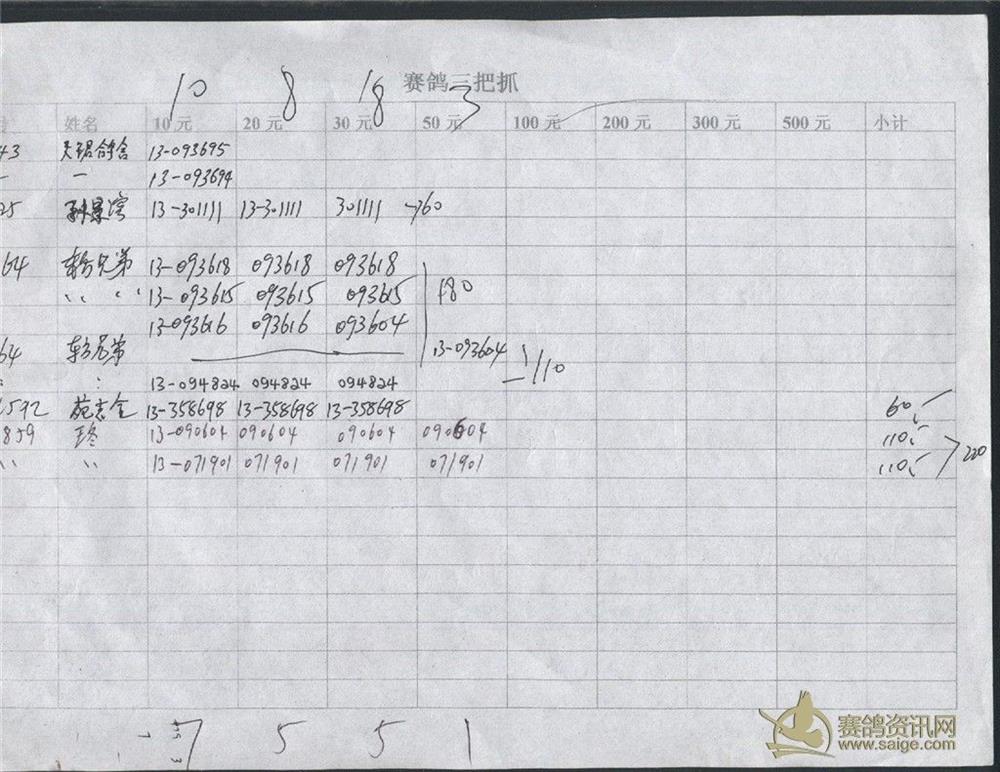 10 8 18 3
赛鸽三把抓
姓名 10元 20元 30元 50元 100元 200元 300元 500元 小计
43 13-093695
13-093694
25 13-301111 13-301111 301111 →60
64 兄弟 13-093618 093618 093618
〃 〃 13-093615 093615 093615 180
13-093616 093616 093604
64 兄弟 13-093604
110
13-094824 094824 094824
1592 苑志全 13-358698 13-358698 13-358698 60
859 13-090604 090604 090604 090604 110
〃 〃 13-071901 071901 071901 071901 110 220
7 5 5 1
赛鸽资讯网
www.saige.com